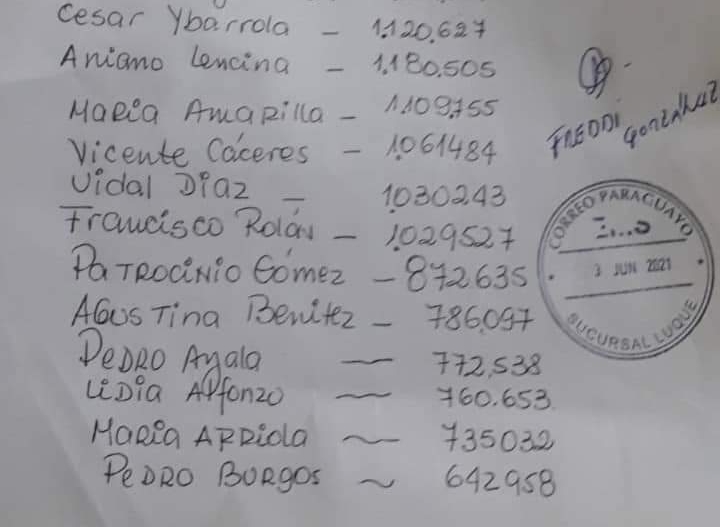 Cesar Ybarrola - 1.120.627
Aniano Lencina - 1.180.505
Maria Amarilla - 1.109.755
Vicente Cáceres - 1.061484
Vidal Diaz - 1.030243
Francisco Rolón - 1.029527
Patrocinio Gómez - 872.635
Agustina Benitez - 786.097
Pedro Ayala - 772,538
Lidia Alfonzo - 760.653
Maria Arriola ~ 735032
Pedro Burgos ~ 642958
FREDDI
CORREO PARAGUAYO
3 JUN 2021
SUCURSAL LUQUE